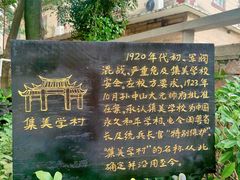 集美学村
1920年代初，军阀
混战，严重危及集美学校
安全。应校方要求，1923年
10月孙中山大元帅府批准
在案，承认集美学校为中国
永久和平学校，电令闽粤省
长及统兵长官"特别保护"。
"集美学村"的名称从此
确定并沿用至今。